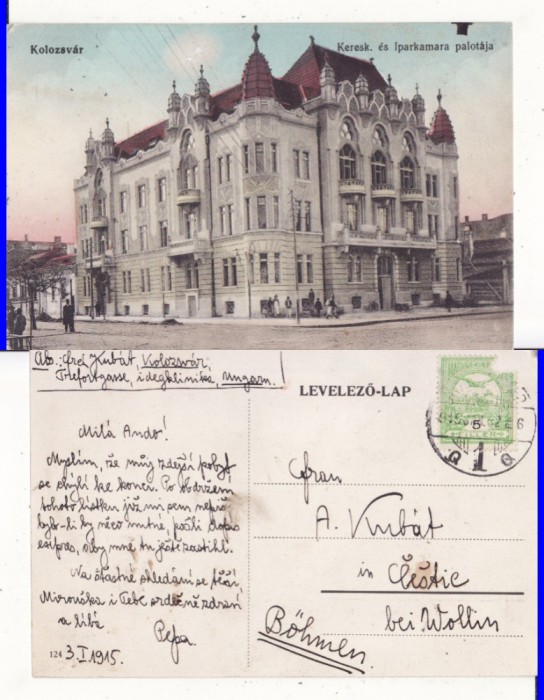 Kolozsvár
Keresk. és Iparkamara palotája
Abs.: Gfrei Kubát, Kolozsvár,
Trefortgasse, idegklinika, Ungarn.
LEVELEZŐ-LAP
Milá Ando!
Myslím, že můj zdejší pobyt
se chýlí ke konci. Po obdržení
tohoto lístku již mi sem nepiš
bylo-li by něco nutné, pošli dopis
expres, aby mne tu ještě zastihl.
Na šťastné shledání se těší,
Miroušha i Tebe srdečně zdraví
a líbá
Pepa.
124 3.I.1915.
Frau
A. Kubát
in Čestic
bei Wollin
Böhmen.
5
6
1